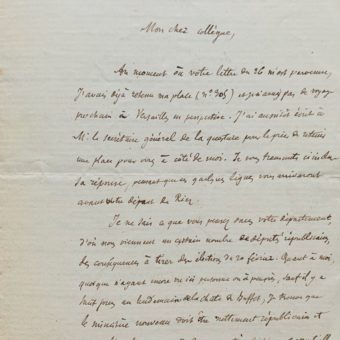 Mon cher collègue,
Au moment où votre lettre du 26 m'est parvenue,
j'avais déjà retenu ma place (n° 305) et je n'avais pas de voyage
prochain à Versailles en perspective. J'ai aussitôt écrit à
M. le secrétaire général de la questure pour le prier de retenir
une place pour vous à côté de moi. Je vous transmets ici
sa réponse, pensant que ces quelques lignes vous arriveront
avant votre départ de Riez.
Je ne sais ce que vous pensez dans votre département,
d'où nous viennent un certain nombre de députés républicains,
des conséquences à tirer des élections du 20 février. Quant à moi,
quoique n'ayant encore vu ici personne ou à peu près, sauf il y a
huit jours au lendemain de la chute de Buffet, je pense que
le ministère nouveau doit être nettement républicain et